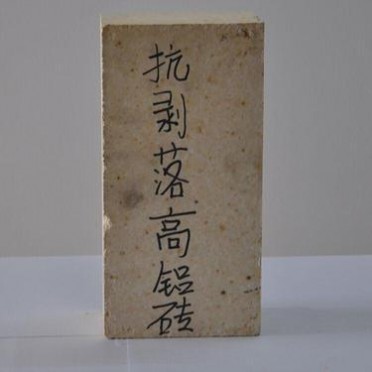 抗剥落高铝砖